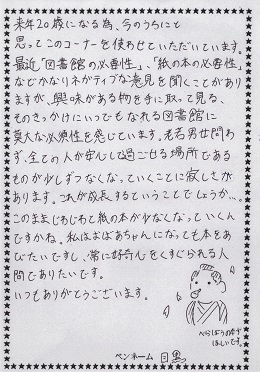 来年20歳になる為、今のうちにと
思ってこのコーナーを使わせていただいています。
最近「図書館の必要性」、「紙の本の必要性」
などかなりネガティブな意見を聞くことがあり
ますが、興味がある物を手に取って見る、
そのきっかけにいつでもなれる図書館に
莫大な必須性を感じています。老若男女問わ
ず、全ての人が安心して過ごせる場所である
ものが少しずつなくなっていくことに寂しさが
あります。これが成長するということでしょうか…。
このままじわじわと紙の本が少なくなっていくん
ですかね。私はおばあちゃんになっても本をあ
びたいですし、常に好奇心をくすぐられる人
間でありたいです。
いつもありがとうございます。
べらぼうの本が
ほしいです。
ペンネーム 目黒